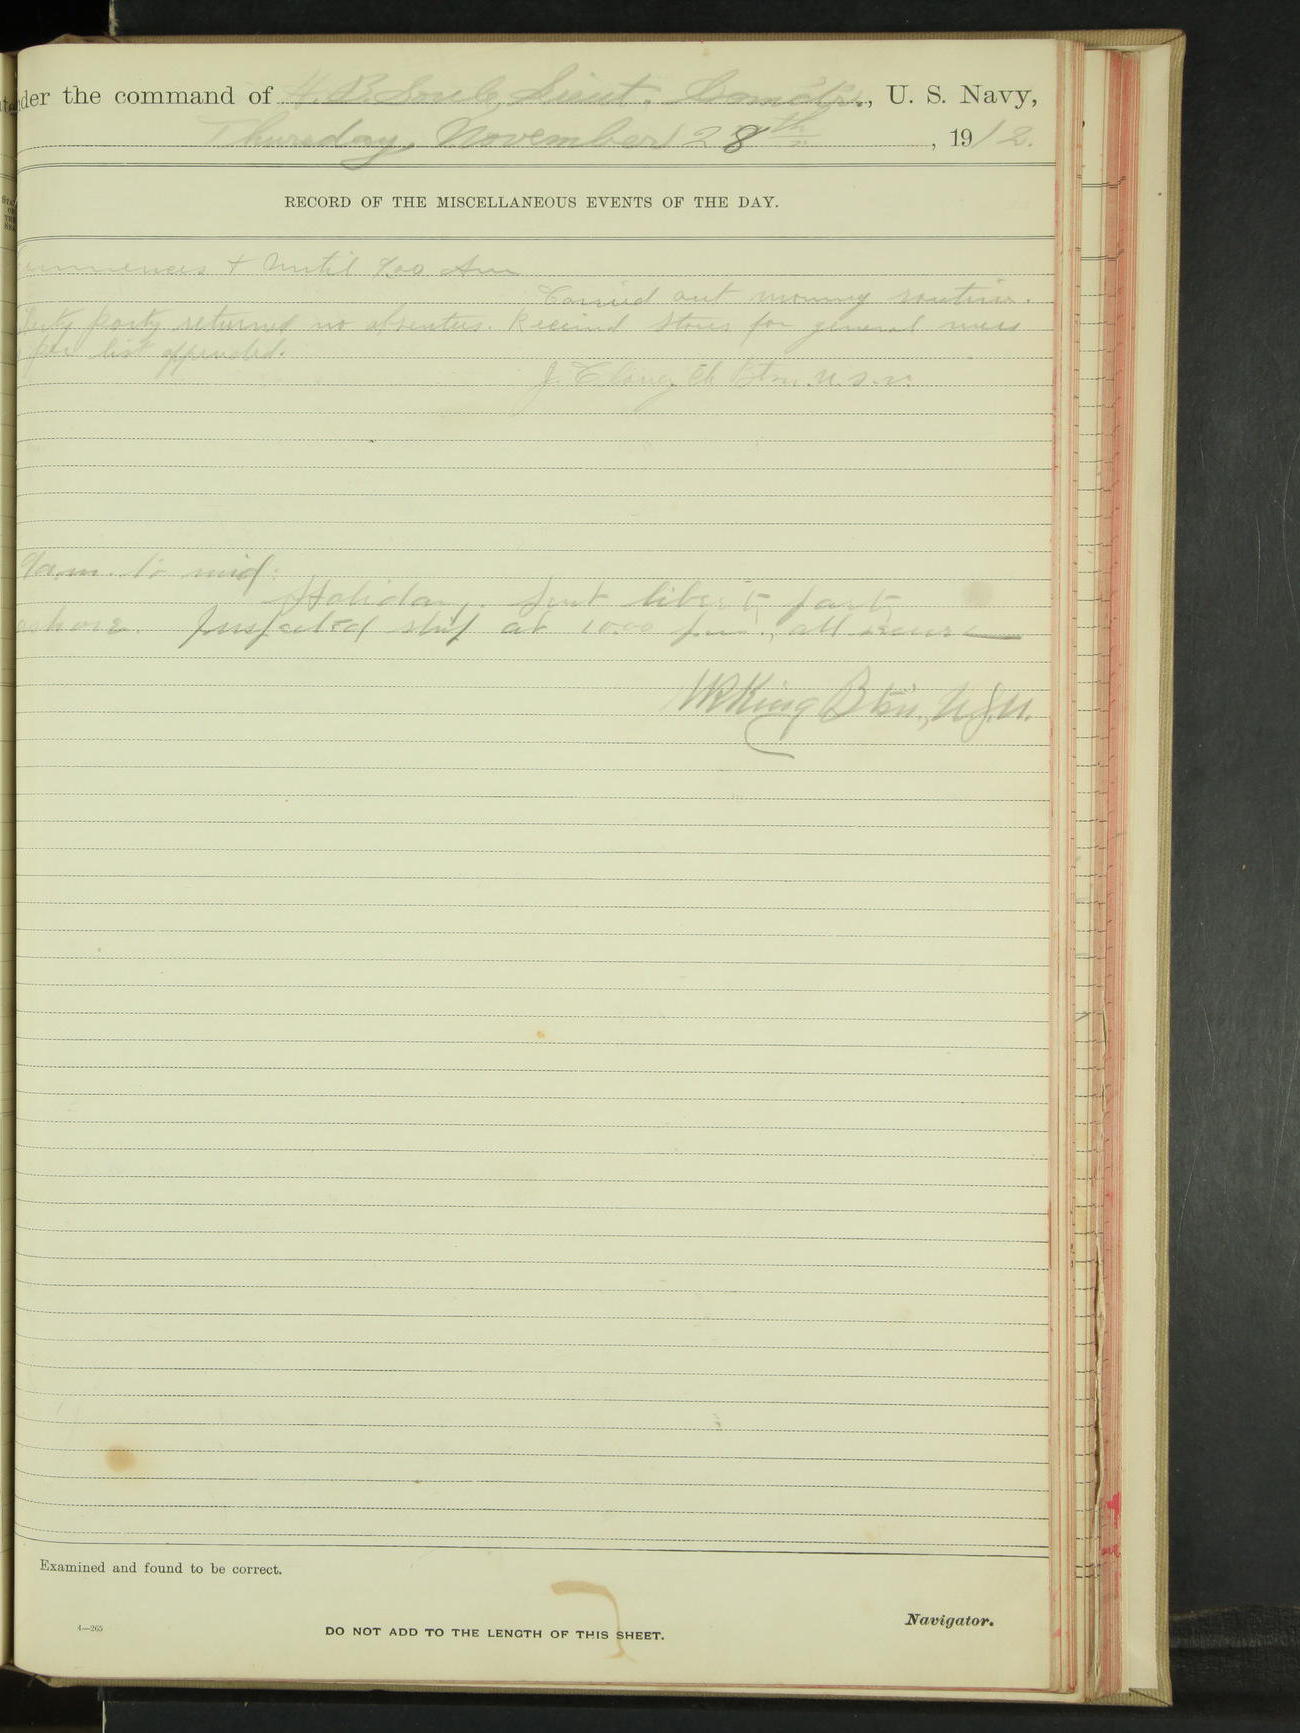 under the command of H. B. Soule, Lieut. Comdr., U. S. Navy,
Thursday, November 28th, 1912.
RECORD OF THE MISCELLANEOUS EVENTS OF THE DAY.
Commences & until 9.00 Am
Carried out morning routine.
party returned no absentees. Received stores for general mess
per list appended.
J. Clancy Ch Btsn. U.S.N.
9 a.m. to mid:
Holiday. Sent liberty party
ashore. Inspected ship at 10.00 p.m., all secure
King Btsn., U.S.N.
Examined and found to be correct.
4—265
DO NOT ADD TO THE LENGTH OF THIS SHEET.
Navigator.